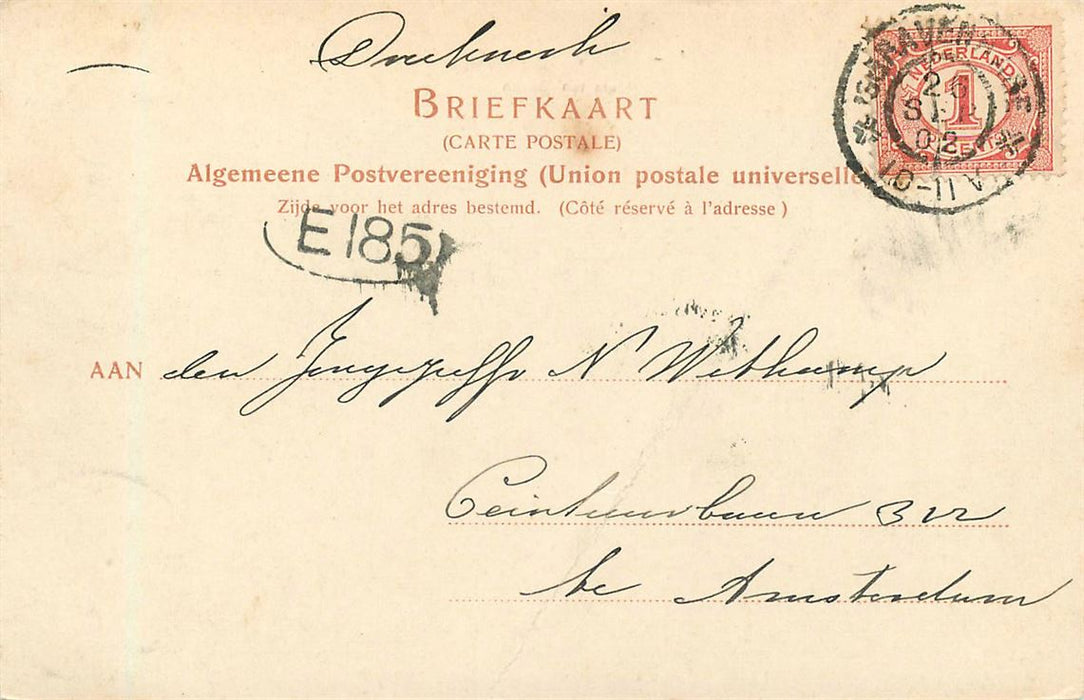 Drukwerk
BRIEFKAART
(CARTE POSTALE)
Algemeene Postvereeniging (Union postale universelle
Zijde voor het adres bestemd. (Côté réservé à l'adresse)
'S GRAVENHAGE
NEDERLAND
1
CENT
SEP
02
10-11 V
E185
AAN den N Wethamp
Ceintuurbaan 312
te Amsterdam